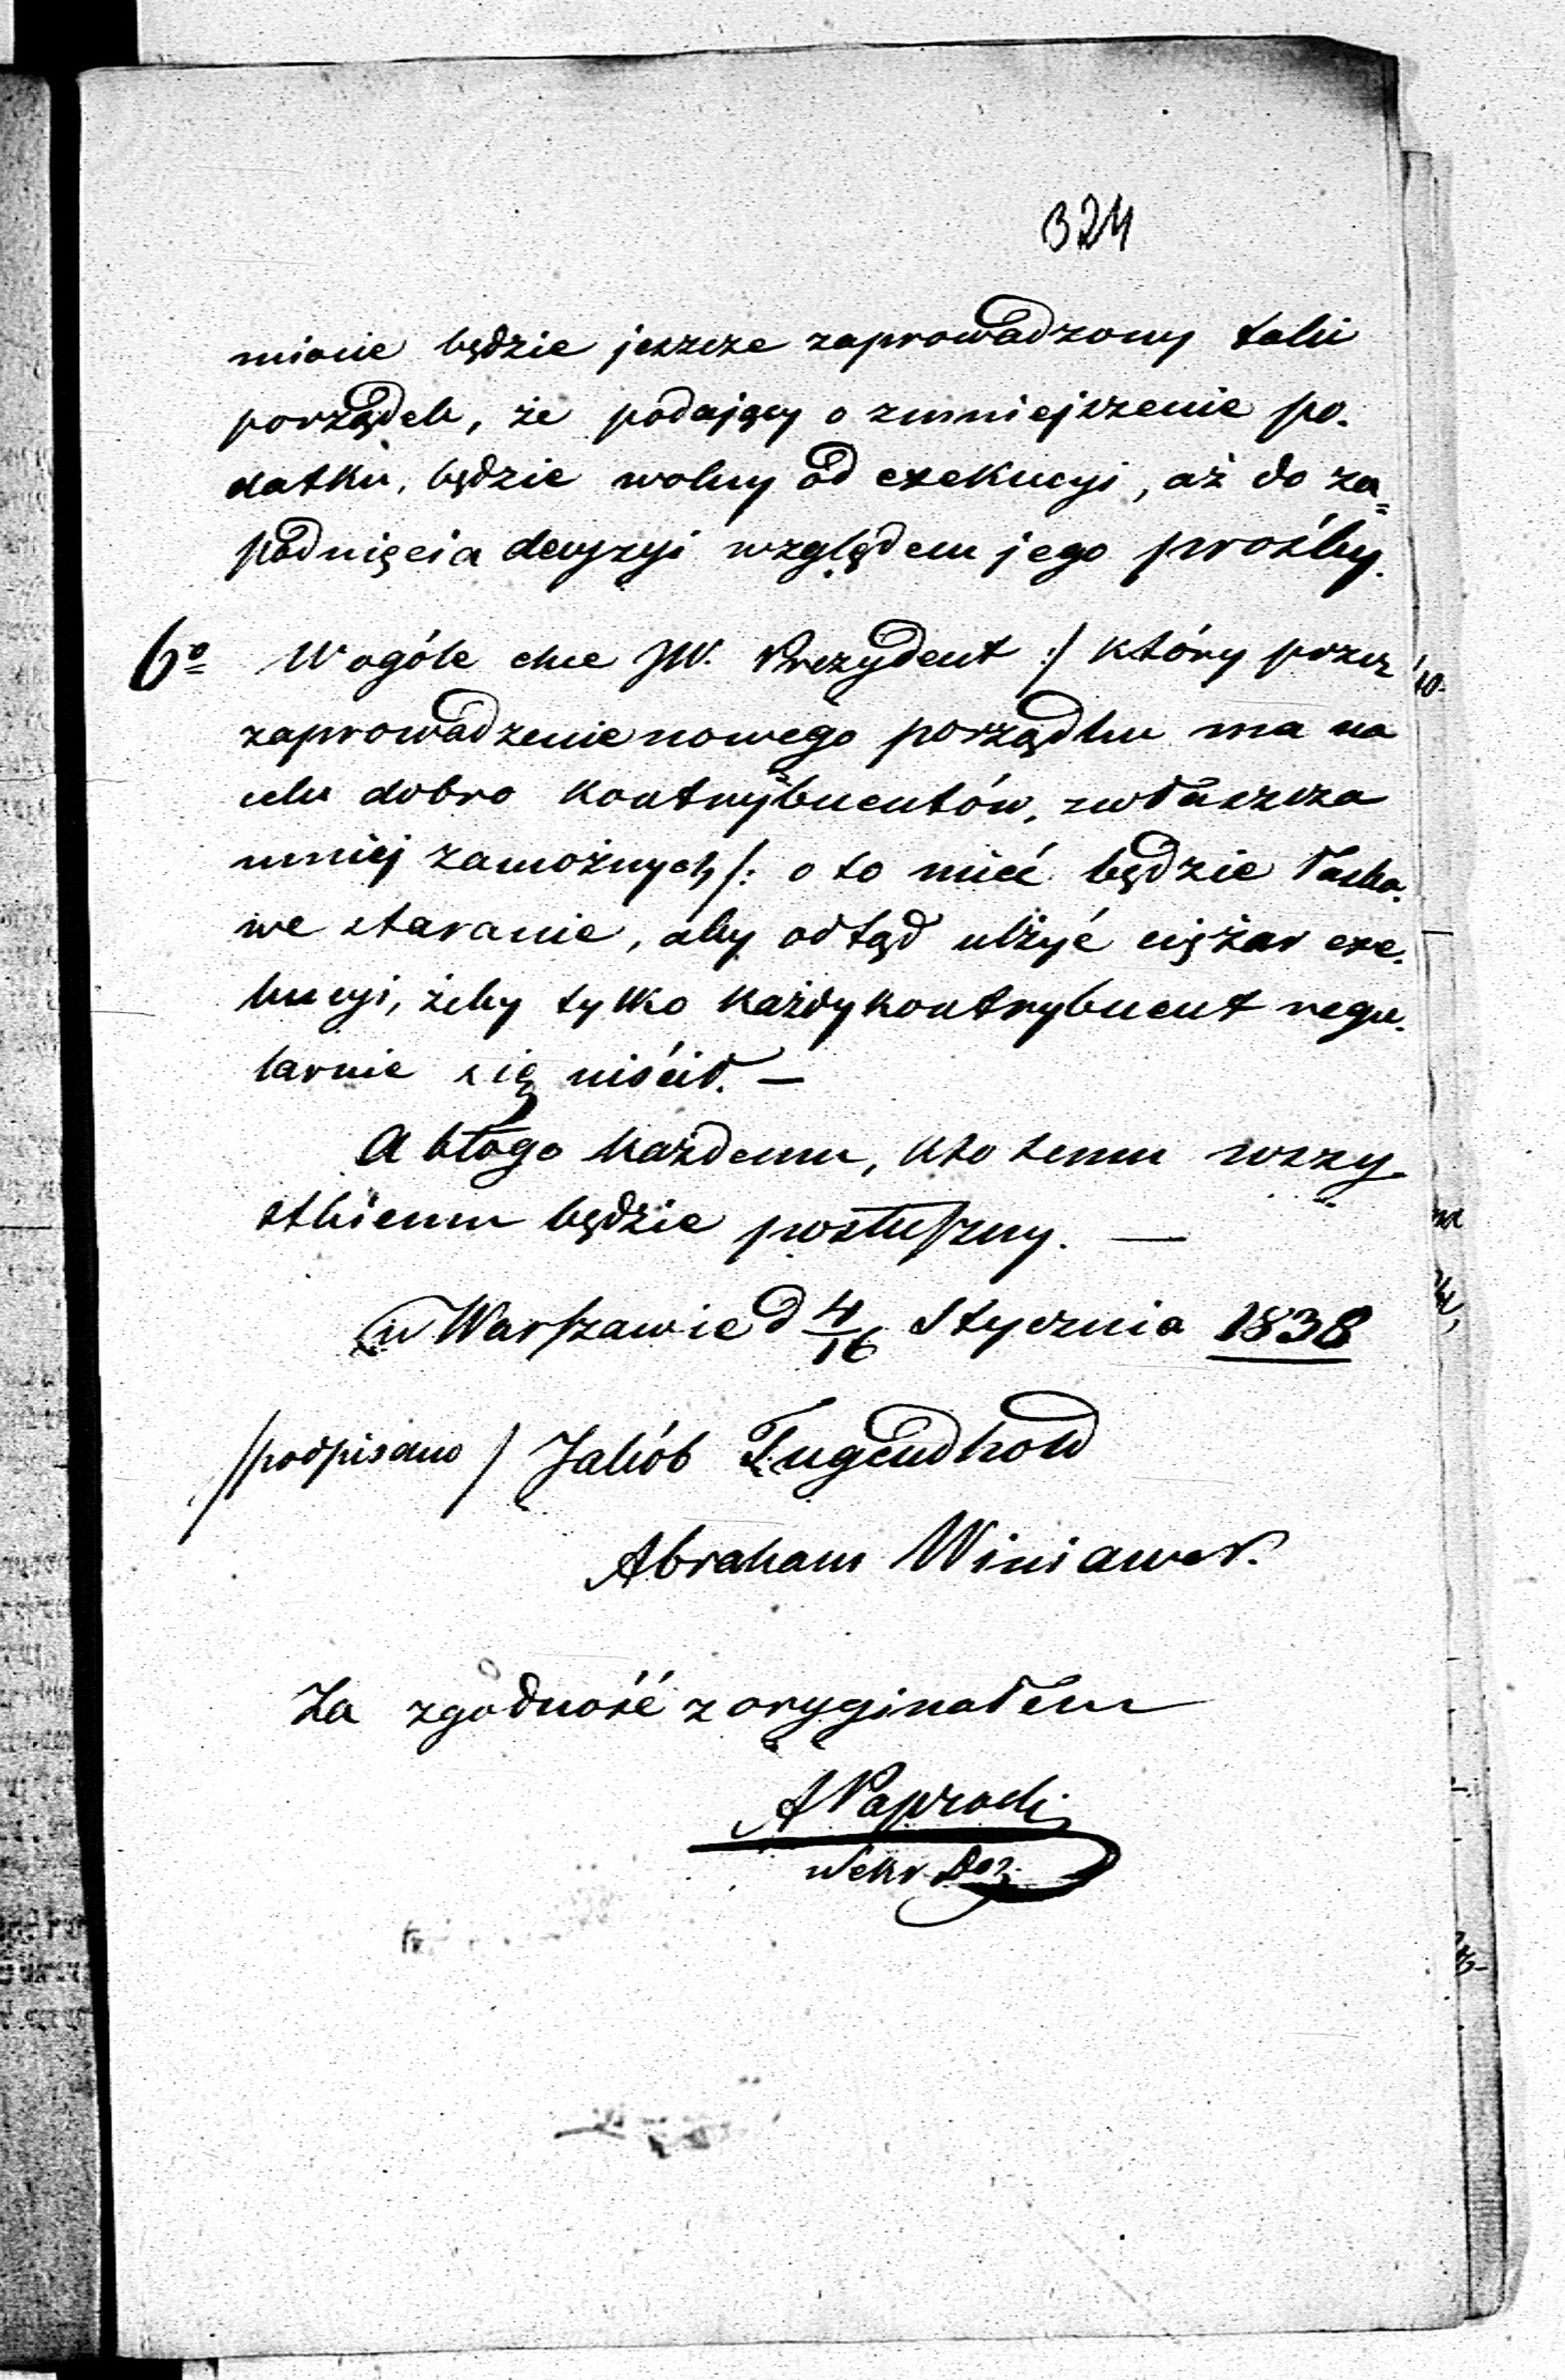 324
mianie będzie jeszcze zaprowadzony taki
porządek, że podający o zmniejszenie po-
datku, będzie wolny od exekucyi, aż do za=
padnięcia decyzyi względem jego prośby.
6o W ogóle chce JW. Prezydent :/ który przez
zaprowadzenie nowego porządku ma na
celu dobro kontrybuentów, zwłaszcza
mniej zamożnych /: o to mieć będzie łaska-
we staranie, aby odtąd ulżyć ciężar exe-
kucyi, żeby tylko każdy kontrybuent regu-
larnie się uiścił. —
A błogo każdemu, kto temu wszy-
stkiemu będzie posłuszny. —
w Warszawie d 4/16 Stycznia 1838
/podpisano/ Jakób Tugendhold
Abraham Winiawer.
Za zgodność z oryginałem
A Paprocki
Sekr Doz.